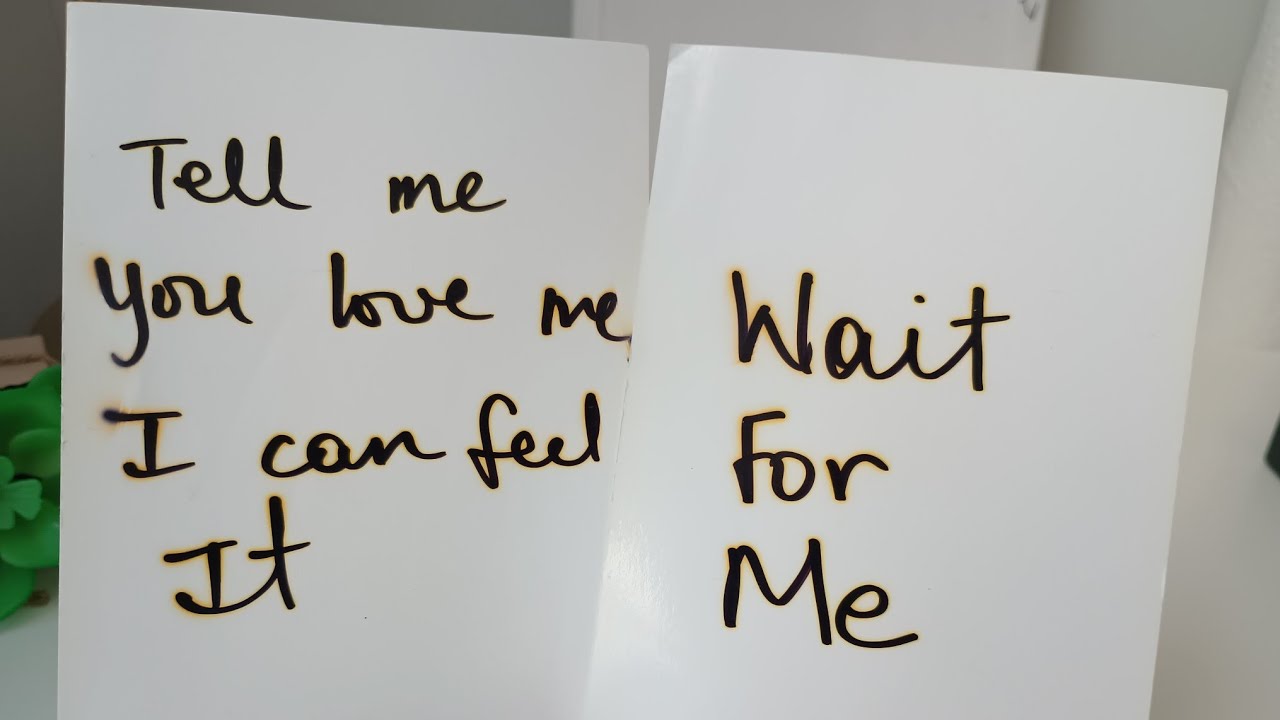 Tell me
you love me,
I can feel
It
Wait
For
Me